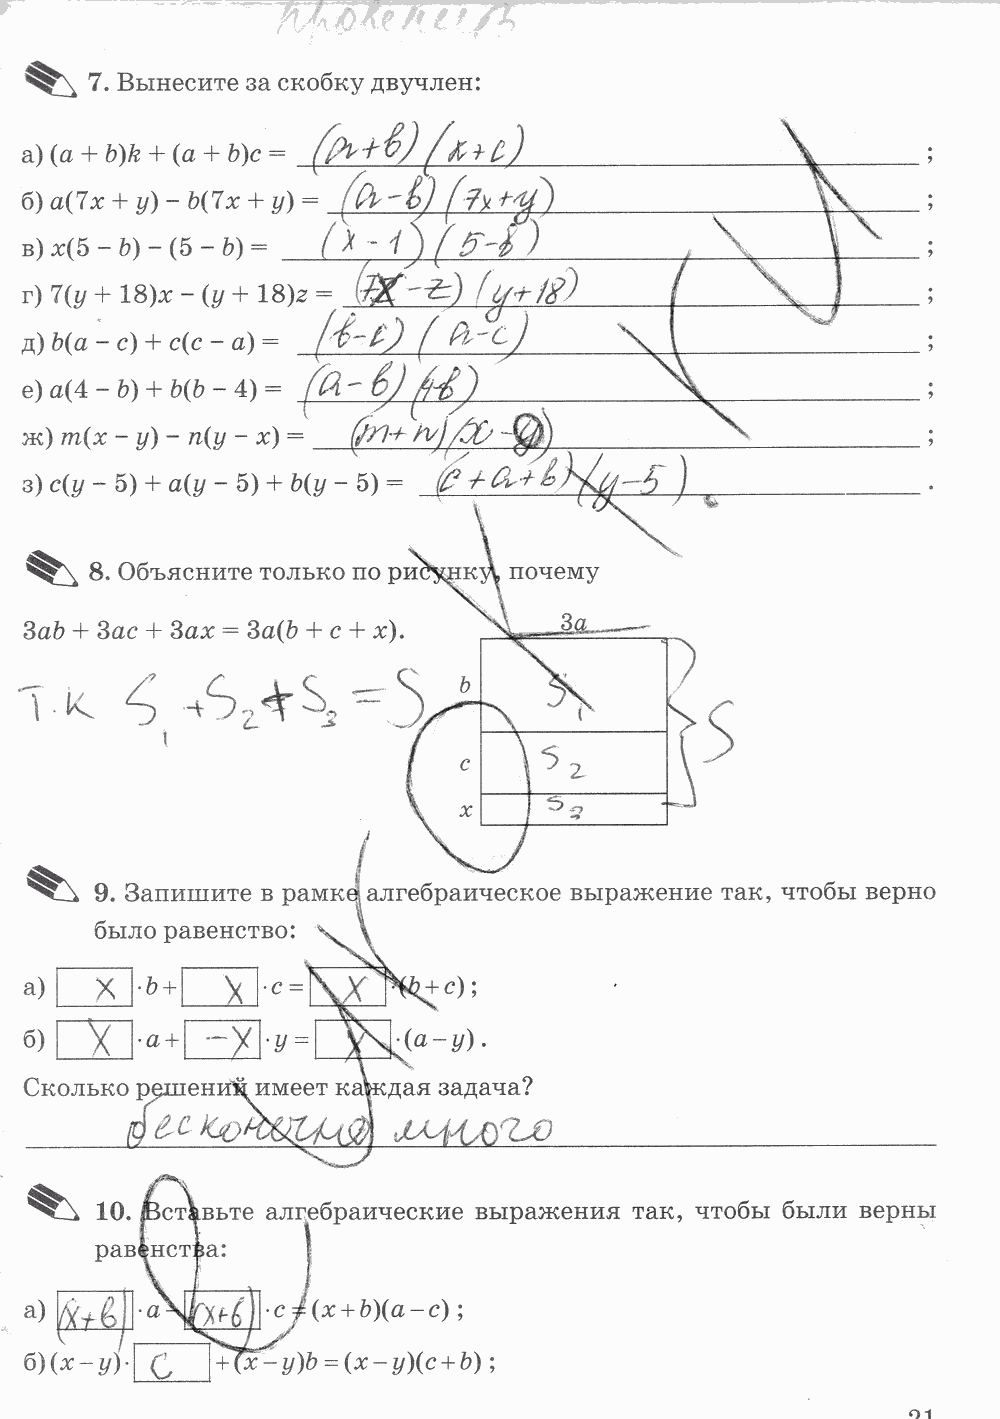 7. Вынесите за скобку двучлен:
а) (a + b)k + (a + b)c = (a+b)(k+c) ;
б) a(7x + y) − b(7x + y) = (a−b)(7x+y) ;
в) x(5 − b) − (5 − b) = (x−1)(5−b) ;
г) 7(y + 18)x − (y + 18)z = (7x−z)(y+18) ;
д) b(a − c) + c(c − a) = (b−c)(a−c) ;
е) a(4 − b) + b(b − 4) = (a−b)(4-b) ;
ж) m(x − y) − n(y − x) = (m+n)(x−y) ;
з) c(y − 5) + a(y − 5) + b(y − 5) = (c+a+b)(y−5) .
8. Объясните только по рисунку, почему
3ab + 3ac + 3ax = 3a(b + c + x).
3a
b S1
Т.К S1 + S2 + S3 = S
S
c S2
x S3
9. Запишите в рамке алгебраическое выражение так, чтобы верно
было равенство:
а) x · b + x · c = x · (b + c) ;
б) x · a + −x · y = x · (a − y) .
Сколько решений имеет каждая задача?
бесконечно много
10. Вставьте алгебраические выражения так, чтобы были верны
равенства:
а) (x+b) · a − (x+b) · c = (x + b)(a − c) ;
б) (x − y) · c + (x − y)b = (x − y)(c + b) ;
21